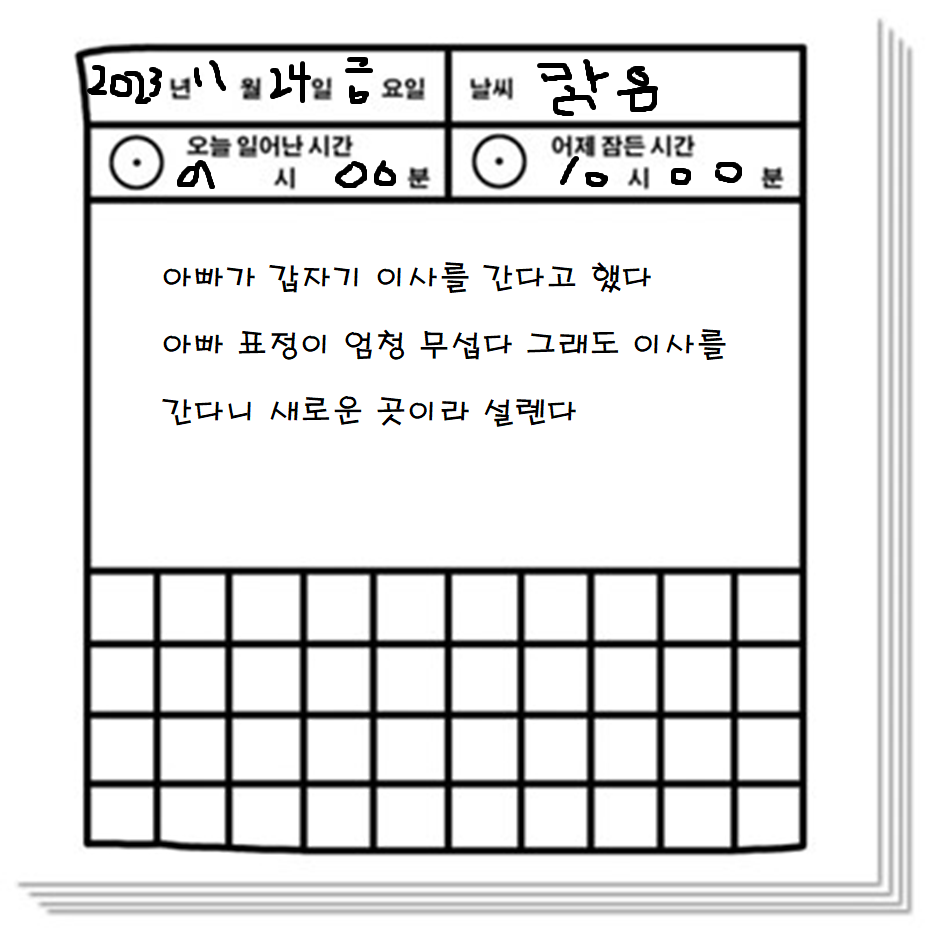 2023년 11월 24일 금요일 날씨 맑음
오늘 일어난 시간 어제 잠든 시간
시 00분 10시 00분
아빠가 갑자기 이사를 간다고 했다
아빠 표정이 엄청 무섭다 그래도 이사를
간다니 새로운 곳이라 설렌다